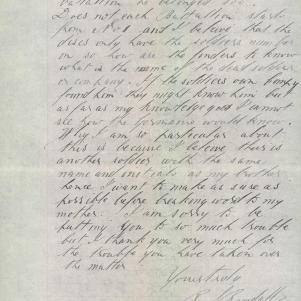 Battalion he belonged to.
Does not each Battalion start
from No 1 and I believe that the
discs only have the soldiers number
on so how are the finders to know
what is the name of the dead soldier
or company. If the soldiers own Compy
found him they might know him but
as far as my knowledge goes I cannot
see how the Germans would know.
Why I am so particular about
this is because I beleive there is
another soldier with the same
name and initials as my brother
hence I want to make as sure as
possible before breaking word to my
mother. I am sorry to be
putting you to so much trouble
but I thank you very much for
the trouble you have taken over
the matter
Yours truly